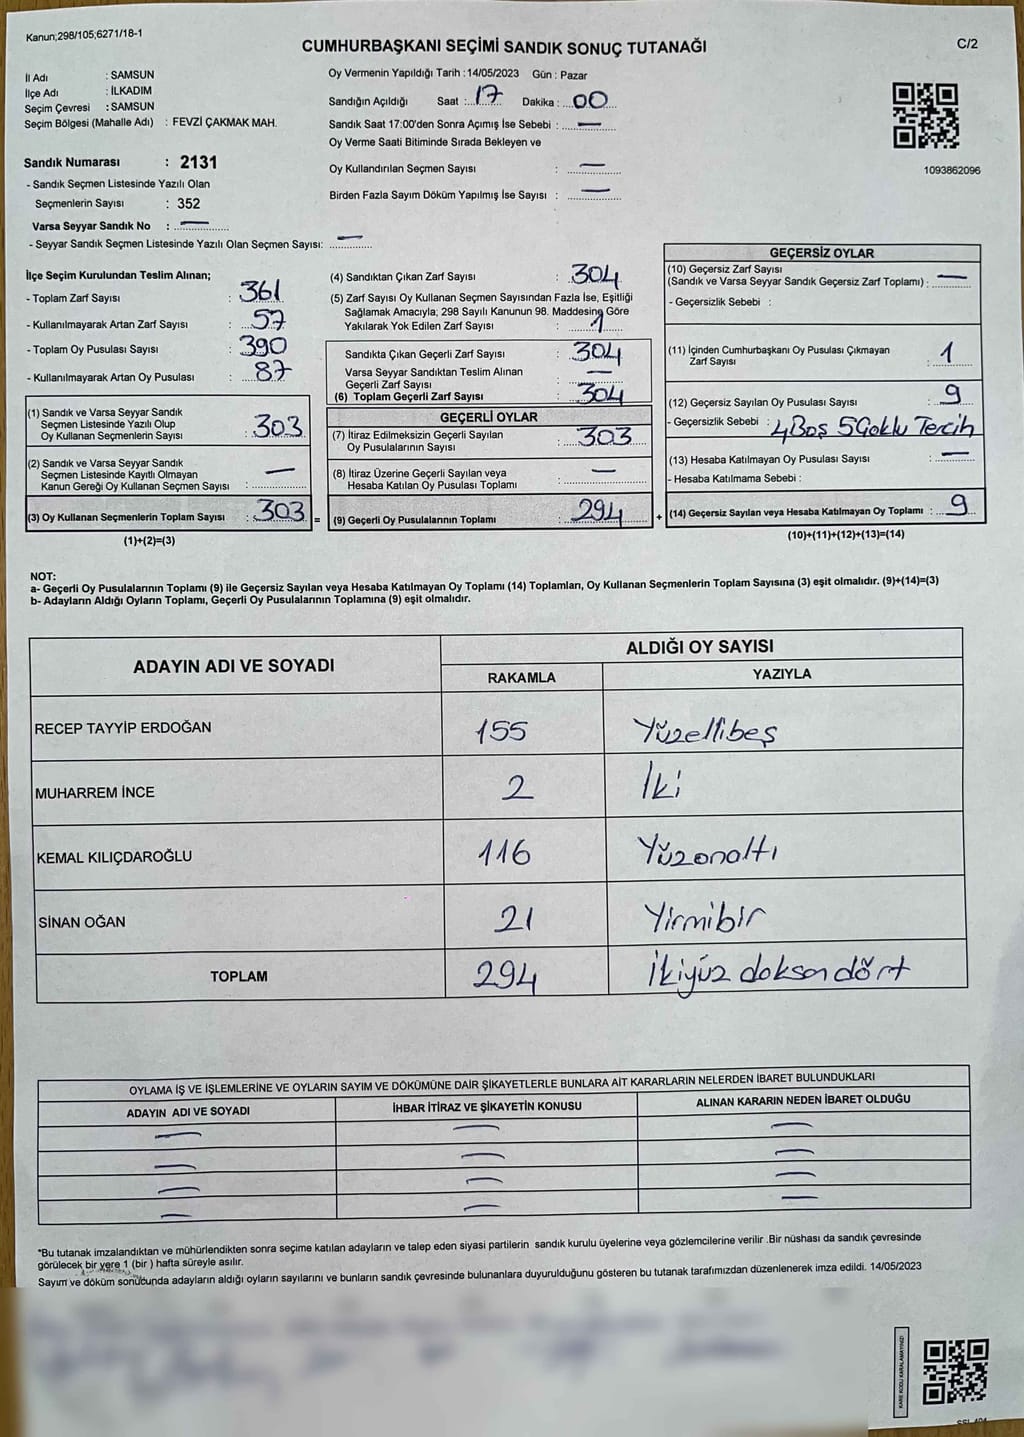 Kanun;298/105;6271/18-1
CUMHURBAŞKANI SEÇİMİ SANDIK SONUÇ TUTANAĞI
C/2
İl Adı : SAMSUN
İlçe Adı : İLKADIM
Seçim Çevresi : SAMSUN
Seçim Bölgesi (Mahalle Adı) : FEVZİ ÇAKMAK MAH.
Sandık Numarası : 2131
- Sandık Seçmen Listesinde Yazılı Olan
Seçmenlerin Sayısı : 352
Varsa Seyyar Sandık No : —
- Seyyar Sandık Seçmen Listesinde Yazılı Olan Seçmen Sayısı: —
Oy Vermenin Yapıldığı Tarih : 14/05/2023 Gün : Pazar
Sandığın Açıldığı Saat : 17 Dakika : 00
Sandık Saat 17:00'den Sonra Açımış İse Sebebi : —
Oy Verme Saati Bitiminde Sırada Bekleyen ve
Oy Kullandırılan Seçmen Sayısı : —
Birden Fazla Sayım Döküm Yapılmış İse Sayısı : —
1093862096
İlçe Seçim Kurulundan Teslim Alınan;
- Toplam Zarf Sayısı : 361
- Kullanılmayarak Artan Zarf Sayısı : 57
- Toplam Oy Pusulası Sayısı : 390
- Kullanılmayarak Artan Oy Pusulası : 87
(1) Sandık ve Varsa Seyyar Sandık
Seçmen Listesinde Yazılı Olup
Oy Kullanan Seçmenlerin Sayısı : 303
(2) Sandık ve Varsa Seyyar Sandık
Seçmen Listesinde Kayıtlı Olmayan
Kanun Gereği Oy Kullanan Seçmen Sayısı : —
(3) Oy Kullanan Seçmenlerin Toplam Sayısı : 303 =
(1)+(2)=(3)
(4) Sandıktan Çıkan Zarf Sayısı : 304
(5) Zarf Sayısı Oy Kullanan Seçmen Sayısından Fazla İse, Eşitliği
Sağlamak Amacıyla; 298 Sayılı Kanunun 98. Maddesine Göre
Yakılarak Yok Edilen Zarf Sayısı : 1
Sandıkta Çıkan Geçerli Zarf Sayısı : 304
Varsa Seyyar Sandıktan Teslim Alınan
Geçerli Zarf Sayısı : —
(6) Toplam Geçerli Zarf Sayısı : 304
GEÇERLİ OYLAR
(7) İtiraz Edilmeksizin Geçerli Sayılan
Oy Pusulalarının Sayısı : 303
(8) İtiraz Üzerine Geçerli Sayılan veya
Hesaba Katılan Oy Pusulası Toplamı : —
(9) Geçerli Oy Pusulalarının Toplamı : 294 +
GEÇERSİZ OYLAR
(10) Geçersiz Zarf Sayısı
(Sandık ve Varsa Seyyar Sandık Geçersiz Zarf Toplamı) : —
- Geçersizlik Sebebi :
(11) İçinden Cumhurbaşkanı Oy Pusulası Çıkmayan
Zarf Sayısı : 1
(12) Geçersiz Sayılan Oy Pusulası Sayısı : 9
- Geçersizlik Sebebi : 4 Boş 5 Çoklu Tercih
(13) Hesaba Katılmayan Oy Pusulası Sayısı : —
- Hesaba Katılmama Sebebi :
(14) Geçersiz Sayılan veya Hesaba Katılmayan Oy Toplamı : 9
(10)+(11)+(12)+(13)=(14)
NOT:
a- Geçerli Oy Pusulalarının Toplamı (9) ile Geçersiz Sayılan veya Hesaba Katılmayan Oy Toplamı (14) Toplamları, Oy Kullanan Seçmenlerin Toplam Sayısına (3) eşit olmalıdır. (9)+(14)=(3)
b- Adayların Aldığı Oyların Toplamı, Geçerli Oy Pusulalarının Toplamına (9) eşit olmalıdır.
ADAYIN ADI VE SOYADI ALDIĞI OY SAYISI
RAKAMLA YAZIYLA
RECEP TAYYİP ERDOĞAN 155 Yüzellibeş
MUHARREM İNCE 2 İki
KEMAL KILIÇDAROĞLU 116 Yüzonaltı
SİNAN OĞAN 21 Yirmibir
TOPLAM 294 İkiyüz doksan dört
OYLAMA İŞ VE İŞLEMLERİNE VE OYLARIN SAYIM VE DÖKÜMÜNE DAİR ŞİKAYETLERLE BUNLARA AİT KARARLARIN NELERDEN İBARET BULUNDUKLARI
ADAYIN ADI VE SOYADI İHBAR İTİRAZ VE ŞİKAYETİN KONUSU ALINAN KARARIN NEDEN İBARET OLDUĞU
— — —
— — —
— — —
— — —
*Bu tutanak imzalandıktan ve mühürlendikten sonra seçime katılan adayların ve talep eden siyasi partilerin sandık kurulu üyelerine veya gözlemcilerine verilir .Bir nüshası da sandık çevresinde
görülecek bir yere 1 (bir ) hafta süreyle asılır.
Sayım ve döküm sonucunda adayların aldığı oyların sayılarını ve bunların sandık çevresinde bulunanlara duyurulduğunu gösteren bu tutanak tarafımızdan düzenlenerek imza edildi. 14/05/2023
KARE KODU KARALAMAYINIZ!